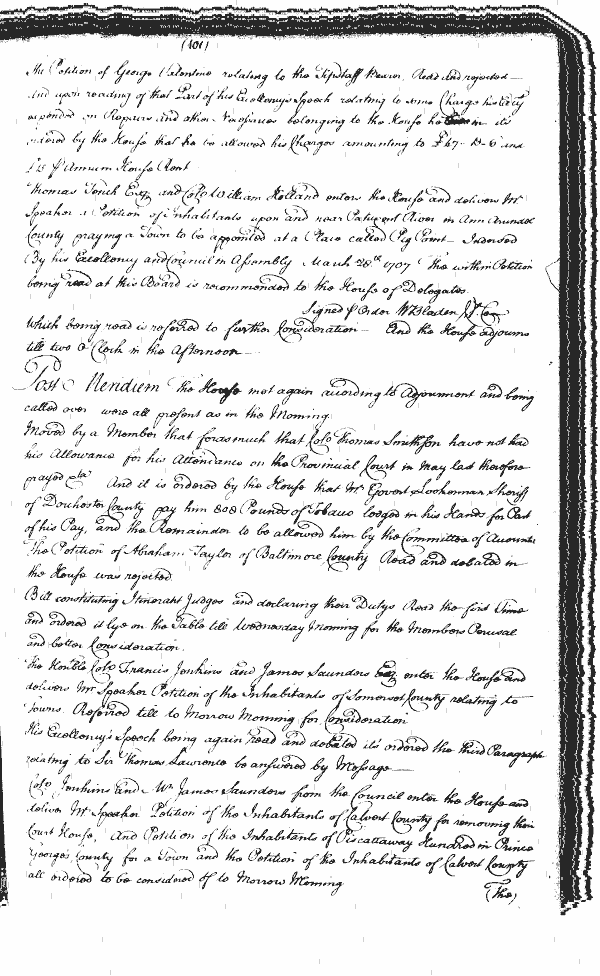 (101)
The Petition of George Valentine relating to the Tipstaff Bearer, Read and rejected —
And upon reading of that Part of his Excellency's Speech relating to some Charge his Excy
expended in Repairs and other Necessaries belonging to the House he in its
ordered by the House that he be allowed his Charges amounting to and
⅌ Annum House Rent
Thomas Tench Esqr and Collo William Holland enters the House and delivers Mr
Speaker a Petition of inhabitants upon and near Patuxent River in Ann Arundel
County praying a Town to be appointed at a Place called Pig Point — Indorsed
By his Excellency and Councill in Assembly March 28th 1707 The within Petition
being read at this Board is recommended to the House of Delegates
Signed ⅌ Order W Bladen Cl Con
Which being read is referred to further Consideration — And the House adjourns
till two o Clock in the Afternoon
Post Meridiem The House met again according to Adjournment and being
called over were all present as in the Morning
Moved by a Member that forasmuch that Collo Thomas Smithson have not had
his Allowance for his Attendance on the Provincial Court in May last therefore
prayed &ca And it is ordered by the House that Mr Govert Loockerman Sheriff
of Dorchester County pay him 808 Pounds of Tobacco lodged in his Hands for Part
of his Pay, and the Remainder to be allowed him by the Committee of Accounts
The Petition of Abraham Taylor of Baltimore County Read and debated in
the House was rejected
Bill constituting Itinerant Judges and declaring their Dutys Read the first Time
and ordered it lye on the Table till Wednesday Morning for the Members Perusal
and better Consideration.
The Honble Collo Francis Jenkins and James Saunders Esqr enter the House and
delivers Mr Speaker Petition of the Inhabitants of Somerset County relating to
Towns. Referred till to Morrow Morning for Consideration
His Excellency's Speech being again read and debated it's ordered the third Paragraph
relating to Sir Thomas Lawrence be answered by Message —
Collo Jenkins and Mr James Saunders from the Council enter the House and
deliver Mr Speaker Petition of the Inhabitants of Calvert County for removing their
Court House, And Petition of the Inhabitants of Piscattaway Hundred in Prince
Georges County for a Town and the Petition of the Inhabitants of Calvert County
all ordered to be considered of to Morrow Morning
(The)